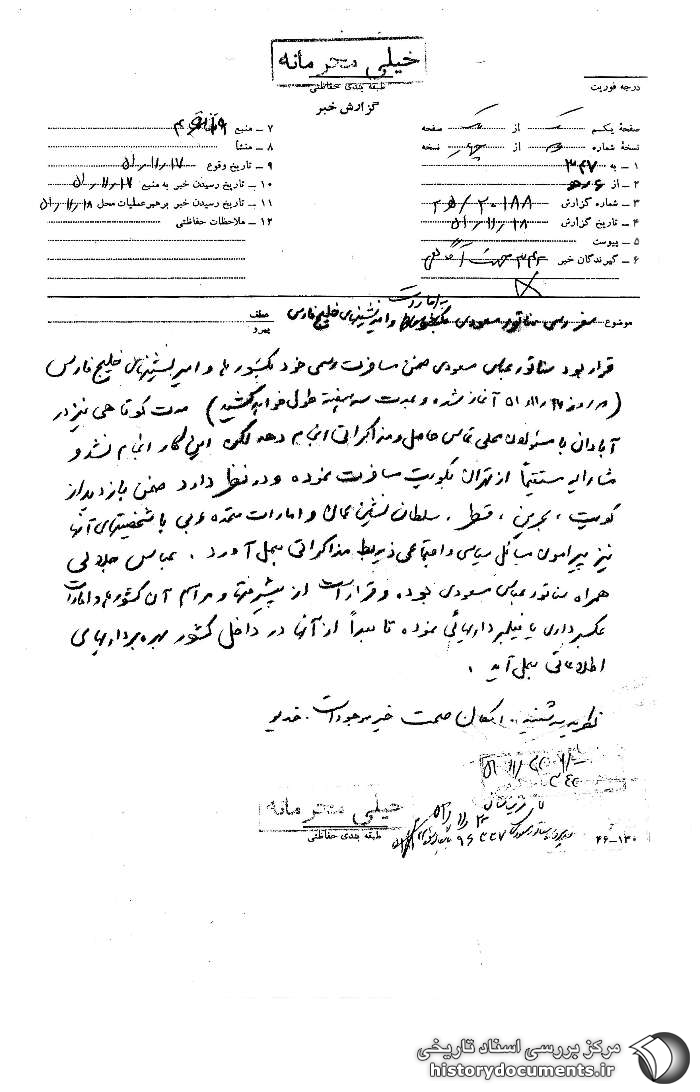 خیلی محرمانه
طبقه بندی حفاظتی
گزارش خبر
درجه فوریت
صفحه یکم از یک صفحه
نسخه شماره از چهار نسخه
۱ ـ به ۳۴۷
۲ ـ از ۶ ه‍ ۵
۳ ـ شماره گزارش ۲۰۱۸۸ / ۲۵ ه‍
۴ ـ تاریخ گزارش ۵۱/۱۱/۱۸
۵ ـ پیوست
۶ ـ گیرندگان خبر ۳۴۲ جهت آگاهی
۷ ـ منبع
۸ ـ منشا
۹ ـ تاریخ وقوع ۵۱/۱۱/۱۷
۱۰ ـ تاریخ رسیدن خبر به منبع ۵۱/۱۱/۱۷
۱۱ ـ تاریخ رسیدن خبر برهبر عملیات محل ۵۱/۱۱/۱۸
۱۲ ـ ملاحظات حفاظتی
موضوع سفر رسمی سناتور مسعودی به امارات و امیرنشینهای خلیج فارس
عطف
پیرو
قرار بود سناتور عباس مسعودی ضمن مسافرت رسمی خود بکشور ها و امیرنشینهای خلیج فارس
(که از روز ۵۱/۱۱/ آغاز شده و بمدت سه هفته طول خواهد کشید) مدت کوتاهی نیز در
آبادان با مسئولان محلی تماس حاصل و مذاکراتی انجام دهد لکن این کار انجام نشد و
مشارالیه مستقیماً از تهران بکویت مسافرت نموده و در نظر دارد ضمن بازدید از
کویت ، بحرین ، قطر ، سلطان نشین عمان و امارات متحده عربی با شخصیتهای آنها
نیز پیرامون مسائل سیاسی و اجتماعی ذیربط مذاکراتی بعمل آورد . عباس جلالی
همراه سناتور عباس مسعودی بوده و قرار است از پیشرفتها و مراسم آن کشور ها و امارات
عکسبرداری یا فیلمبرداریهائی نموده تا بعداً از آنها در داخل کشور بهره برداریهای
اطلاعاتی بعمل آید .
نظریه شنبه . امکان صحت خبر موجود است . خدیو
خیلی محرمانه
طبقه بندی حفاظتی
۴۶-۱۳۰
مرکز بررسی اسناد تاریخی
historydocuments.ir